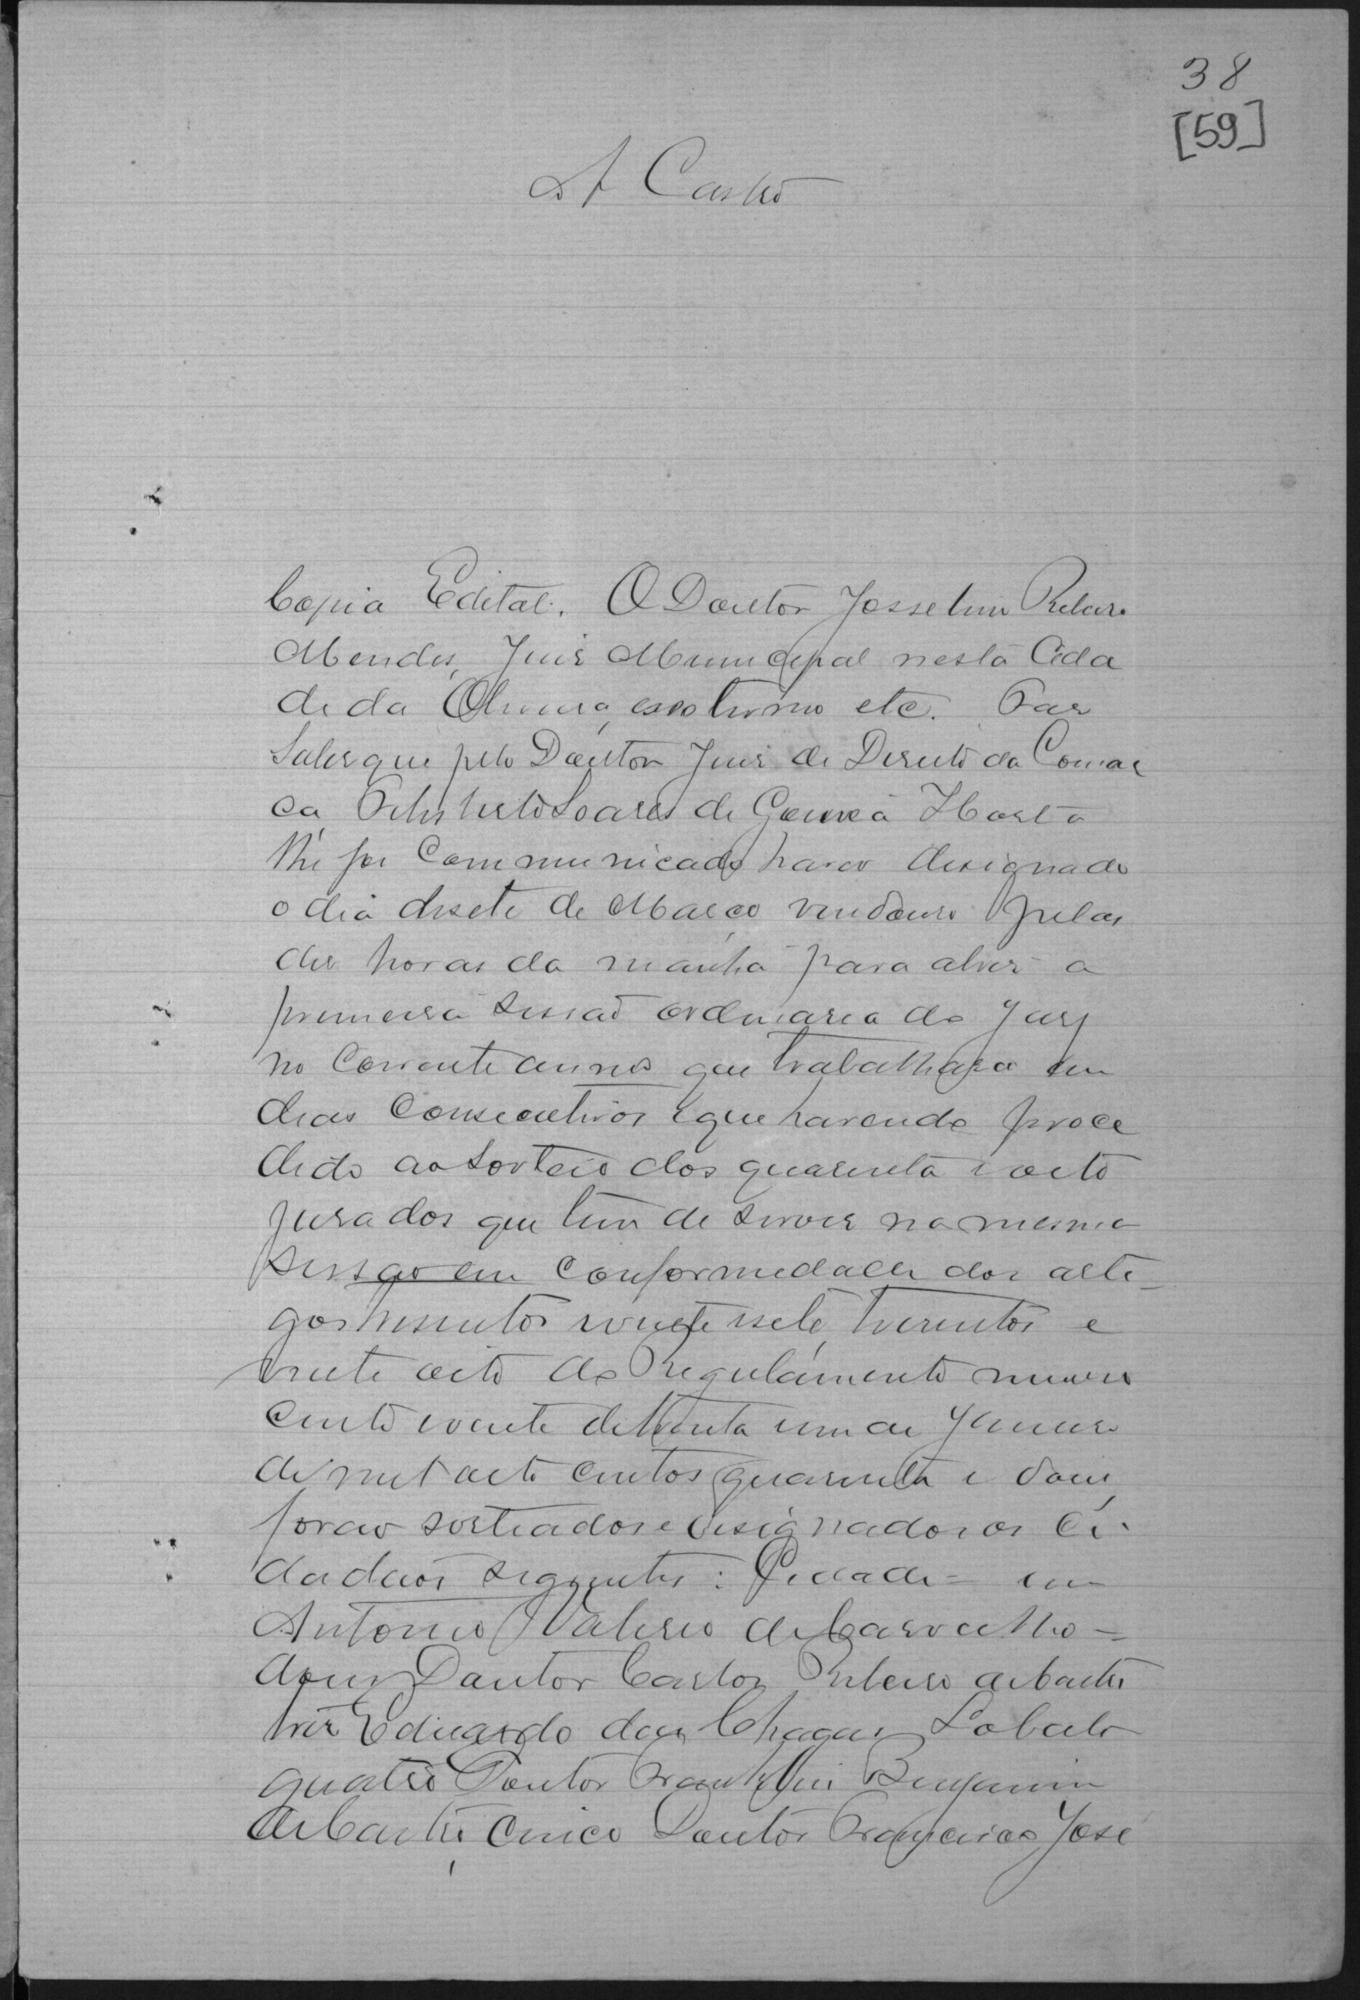 38
[59]
A Castro
Copia Edital. O Doutor Josselim Ribeiro
Mendes, Juis Municipal nesta Cida
de da Oliveira, e seo termo etc. Fas
saber que pelo Doutor Juis de Direito da Comar
ca Felisberto Soares de Gouvea Horta
lhe foi communicado haver designado
o dia desete de Março vindouro pelas
des horas da manha para abrir a
primeira sessaõ ordinaria do Jury
no corrente anno que trabalhara em
dias consecutivos e que havendo proce
dido ao sorteio dos quarenta e oito
jurados que tem de servir na mesma
sessao em conformidade dos arti
gos tresentos vinte e sete, tresentos e
vinte oito do Regulamento numero
cento e vinte de trinta um de Janeiro
de mil oito centos quarenta e dous,
forao sorteados e designados os Ci
dadaos seguintes: Cidade = um
Antonio Valerio de Carvalho =
dous Doutor Carlos Ribeiro de Castro
tres Eduardo das Chagas Lobato
quatro Doutor Franklin Benjamin
de Castro, cinco Doutor Francisco José